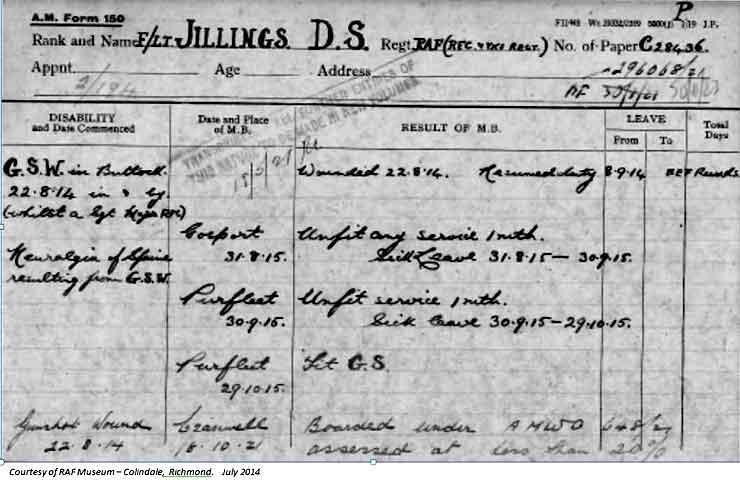 A.M. Form 150
P
Rank and Name F/LT. JILLINGS D.S. Regt. RAF (REC. REGT.) No. of Paper C28436.
296068/21
Appnt. Age Address
DISABILITY and Date Commenced
Date and Place of M.B.
RESULT OF M.B.
LEAVE
From To
Total Days
G.S.W. in Buttock. Wounded 22.8.14. Resumed duty 8.9.14 BEF Records
22.8.14 in
(whilst a Sgt Major RFC)
Gosport Unfit any service 1 mth.
31.8.15 Sick Leave 31.8.15 — 30.9.15.
Neuralgia of Spine
resulting from G.S.W.
Purfleet Unfit service 1 mth.
30.9.15. Sick leave 30.9.15 — 29.10.15.
Purfleet Fit G.S.
29.10.15.
Gunshot Wound Cranwell Boarded under AMWO 648/21
22.8.14 10.21 assessed at less than 20%
Courtesy of RAF Museum – Colindale, Richmond. July 2014